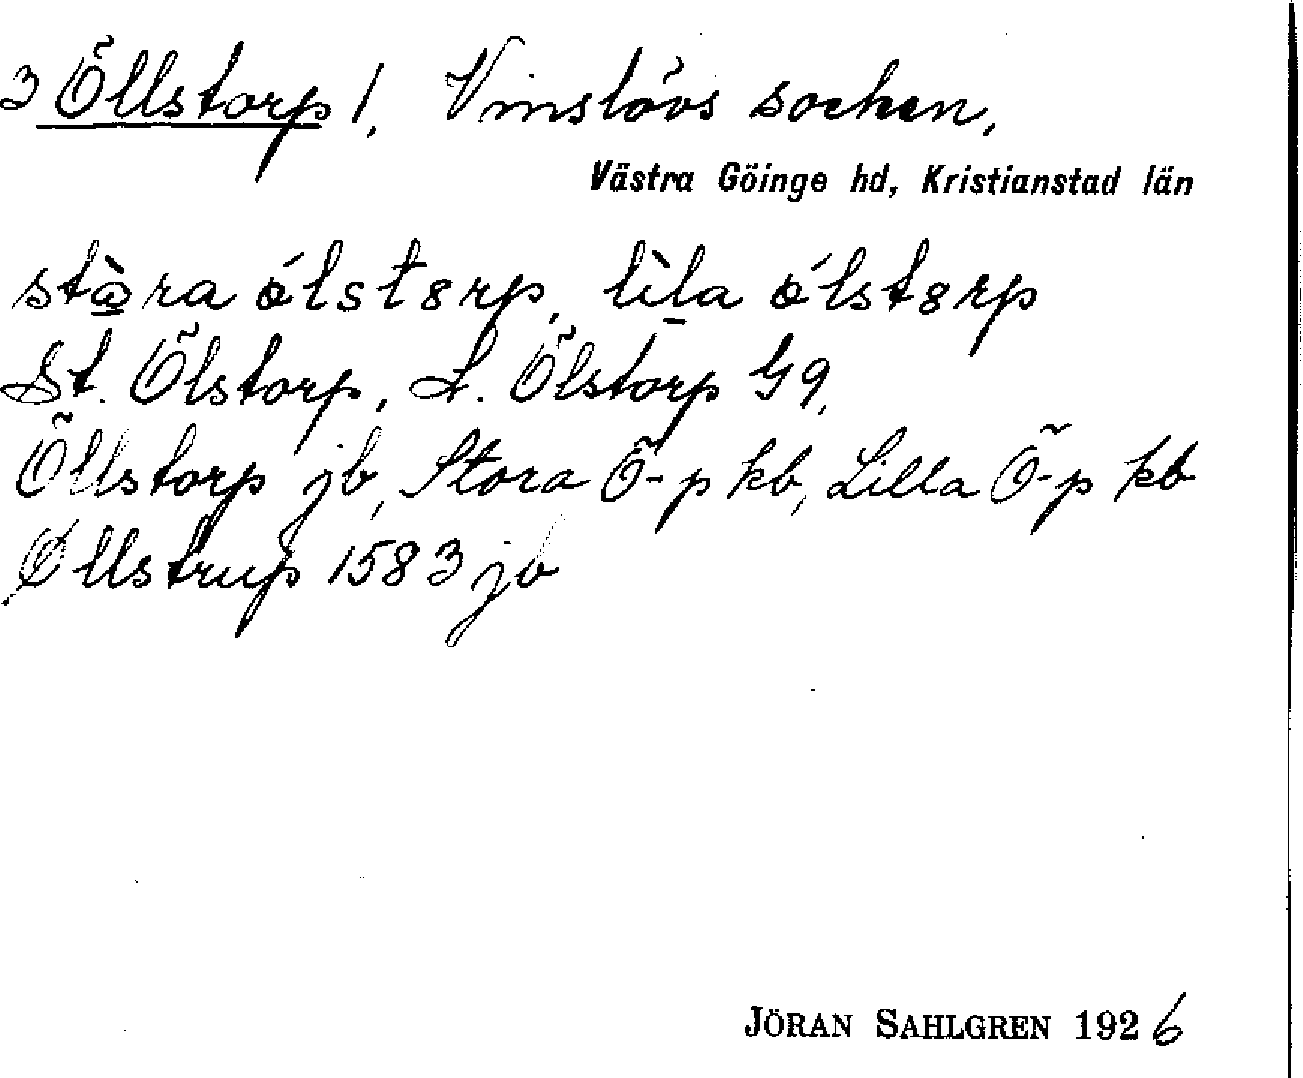 3 Öllstorp 1, Vinslövs socken,
Västra Göinge hd, Kristianstad län
stòra ólstorp, lìla ólstorp
St. Ölstorp, L. Ölstorp G9,
Öllstorp jb, Stora Ö-p kb, Lilla Ö-p kb
Øllstrup 1583 jb
JÖRAN SAHLGREN 1926